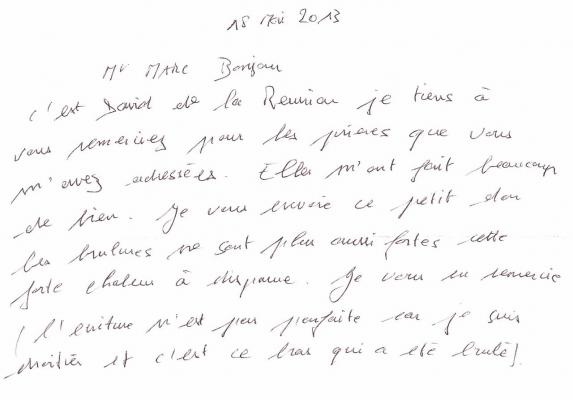 18 Mai 2013
Mr MARC Bonjour
C'est David de la Reunion je tiens à
vous remerciez pour les prieres que vous
m'avez adressées. Elles m'ont fait beaucoup
de bien. Je vous envoie ce petit don
les brulures ne sont plus aussi fortes cette
forte chaleur à disparue. Je vous en remercie
(l'ecriture n'est pas parfaite car je suis
droitier et c'est ce bras qui a eté brulé).